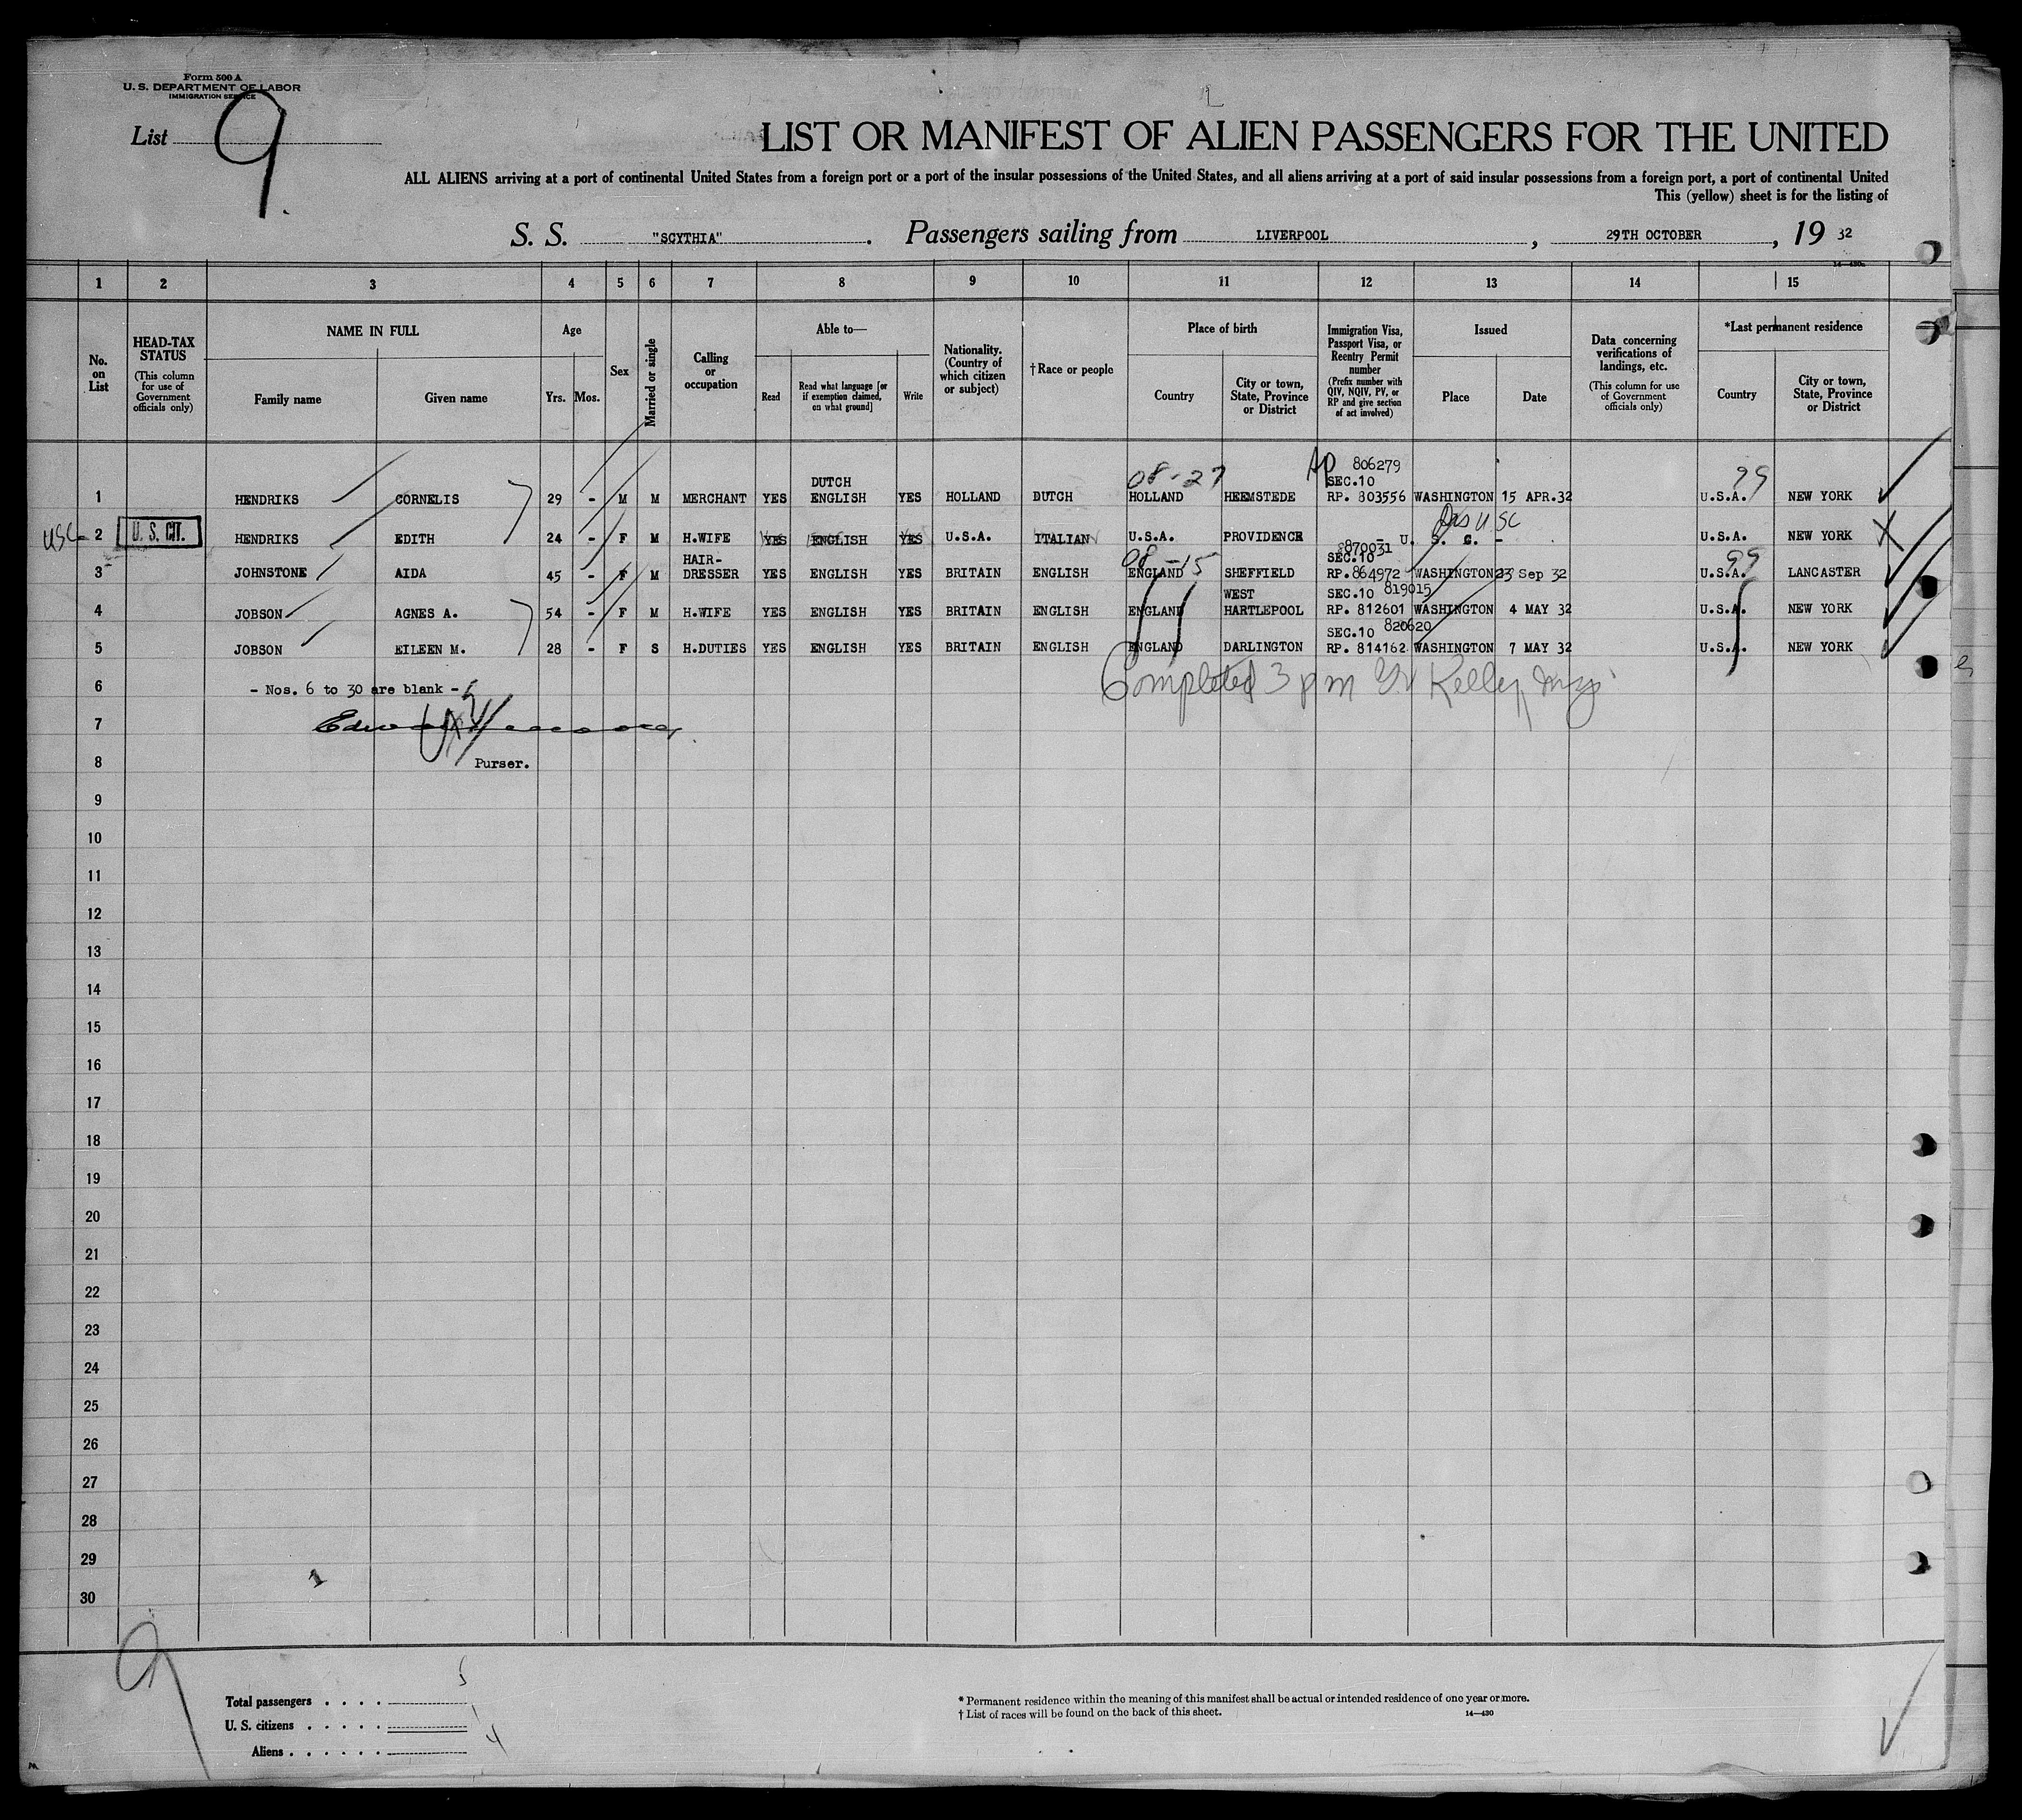 Form 500 A
U. S. DEPARTMENT OF LABOR
IMMIGRATION SERVICE
List 9
LIST OR MANIFEST OF ALIEN PASSENGERS FOR THE UNITED
ALL ALIENS arriving at a port of continental United States from a foreign port or a port of the insular possessions of the United States, and all aliens arriving at a port of said insular possessions from a foreign port, a port of continental United
This (yellow) sheet is for the listing of
S. S. "SCYTHIA". Passengers sailing from LIVERPOOL, 29TH OCTOBER, 19 32
1 2 3 4 5 6 7 8 9 10 11 12 13 14 15
No. on List
HEAD-TAX STATUS (This column for use of Government officials only)
NAME IN FULL
Family name Given name
Age
Yrs. Mos.
Sex
Married or single
Calling or occupation
Able to—
Read Read what language [or if exemption claimed, on what ground] Write
Nationality. (Country of which citizen or subject)
†Race or people
Place of birth
Country City or town, State, Province or District
Immigration Visa, Passport Visa, or Reentry Permit number (Prefix number with QIV, NQIV, PV, or RP and give section of act involved)
Issued
Place Date
Data concerning verifications of landings, etc. (This column for use of Government officials only)
*Last permanent residence
Country City or town, State, Province or District
08-27 806279 99
DUTCH SEC.10
1 HENDRIKS CORNELIS 29 - M M MERCHANT YES ENGLISH YES HOLLAND DUTCH HOLLAND HEEMSTEDE RP. 803556 WASHINGTON 15 APR.32 U.S.A. NEW YORK
USC 2 U. S. CIT. HENDRIKS EDITH 24 - F M H.WIFE YES ENGLISH YES U.S.A. ITALIAN U.S.A. PROVIDENCE - U. S. C. - U.S.A. NEW YORK
870031
HAIR- 08-15 SEC.10 99
3 JOHNSTONE AIDA 45 - F M DRESSER YES ENGLISH YES BRITAIN ENGLISH ENGLAND SHEFFIELD RP. 864972 WASHINGTON 23 Sep 32 U.S.A. LANCASTER
WEST SEC.10 819015
4 JOBSON AGNES A. 54 - F M H.WIFE YES ENGLISH YES BRITAIN ENGLISH ENGLAND HARTLEPOOL RP. 812601 WASHINGTON 4 MAY 32 U.S.A. NEW YORK
SEC.10 820620
5 JOBSON EILEEN M. 28 - F S H.DUTIES YES ENGLISH YES BRITAIN ENGLISH ENGLAND DARLINGTON RP. 814162 WASHINGTON 7 MAY 32 U.S.A. NEW YORK
6 - Nos. 6 to 30 are blank - Completed 3 pm Kelly
7
8 Purser.
9
10
11
12
13
14
15
16
17
18
19
20
21
22
23
24
25
26
27
28
29
30
9
Total passengers . . . . 5
U. S. citizens . . . . . 1
Aliens . . . . . . 4
* Permanent residence within the meaning of this manifest shall be actual or intended residence of one year or more.
† List of races will be found on the back of this sheet. 14—430